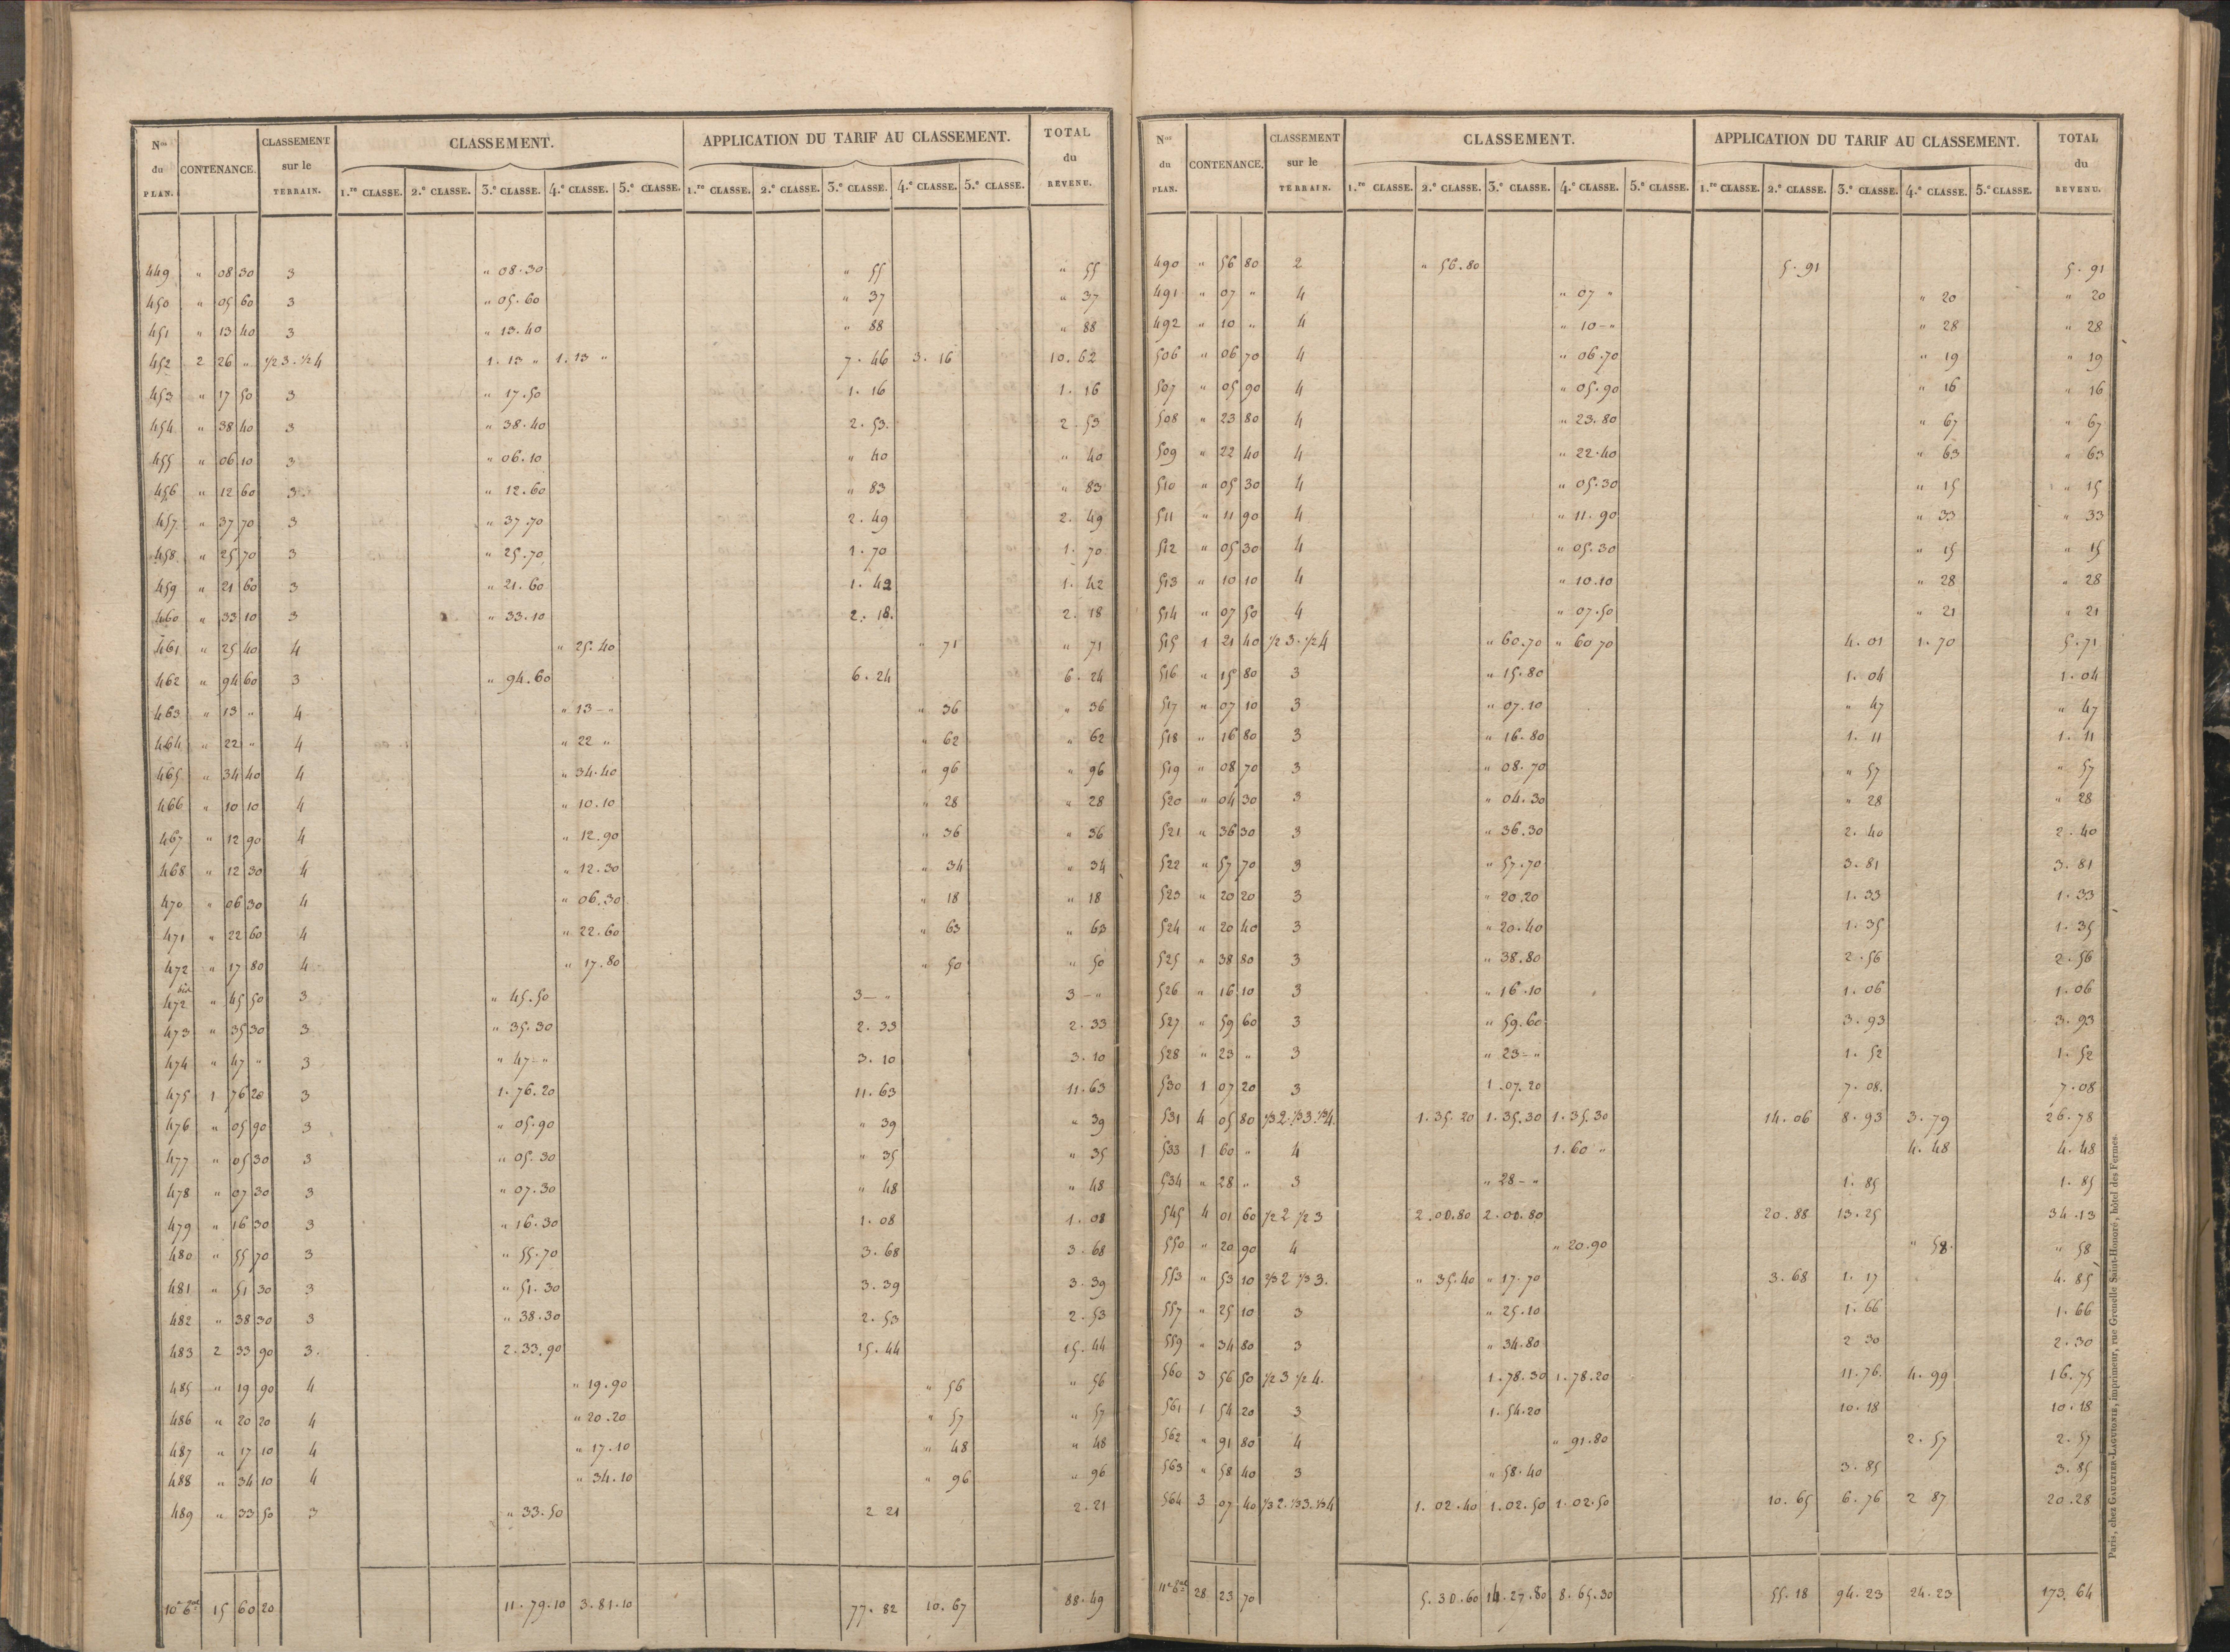 Nos du PLAN. CONTENANCE. CLASSEMENT sur le TERRAIN. CLASSEMENT. APPLICATION DU TARIF AU CLASSEMENT. TOTAL du REVENU.
1.re CLASSE. 2.e CLASSE. 3.e CLASSE. 4.e CLASSE. 5.e CLASSE. 1.re CLASSE. 2.e CLASSE. 3.e CLASSE. 4.e CLASSE. 5.e CLASSE.
449 " 08 30 3 " 08.30 " 55 " 55
450 " 05 60 3 " 05.60 " 37 " 37
451 " 13 40 3 " 13.40 " 88 " 88
452 2 26 " 1/2 3. 1/2 4 1.13 " 1.13 " 7.46 3.16 10.62
453 " 17 50 3 " 17.50 1.16 1.16
454 " 38 40 3 " 38.40 2.53. 2.53
455 " 06 10 3 " 06.10 " 40 " 40
456 " 12 60 3. " 12.60 " 83 " 83
457 " 37 70 3 " 37.70 2.49 2.49
458 " 25 70 3 " 25.70 1.70 1.70
459 " 21 60 3 " 21.60 1.42 1.42
460 " 33 10 3 " 33.10 2.18. 2.18
461 " 25 40 4 " 25.40 " 71 " 71
462 " 94 60 3 " 94.60 6.24 6.24
463 " 13 " 4 " 13 - " " 36 " 36
464 " 22 " 4 " 22 " " 62 " 62
465 " 34 40 4 " 34.40 " 96 " 96
466 " 10 10 4 " 10.10 " 28 " 28
467 " 12 90 4 " 12.90 " 36 " 36
468 " 12 30 4 " 12.30 " 34 " 34
470 " 06 30 4 " 06.30 " 18 " 18
471 " 22 60 4 " 22.60 " 63 " 63
472 " 17 80 4 " 17.80 " 50 " 50
472 bis " 45 50 3 " 45.50 3 - " 3 - "
473 " 35 30 3 " 35.30 2.33 2.33
474 " 47 " 3 " 47 - " 3.10 3.10
475 1 76 20 3 1.76.20 11.63 11.63
476 " 05 90 3 " 05.90 " 39 " 39
477 " 05 30 3 " 05.30 " 35 " 35
478 " 07 30 3 " 07.30 " 48 " 48
479 " 16 30 3 " 16.30 1.08 1.08
480 " 55 70 3 " 55.70 3.68 3.68
481 " 51 30 3 " 51.30 3.39 3.39
482 " 38 30 3 " 38.30 2.53 2.53
483 2 33 90 3. 2.33.90 15.44 15.44
485 " 19 90 4 " 19.90 " 56 " 56
486 " 20 20 4 " 20.20 " 57 " 57
487 " 17 10 4 " 17.10 " 48 " 48
488 " 34 10 4 " 34.10 " 96 " 96
489 " 33 50 3 " 33.50 2 21 2.21
15 60 20 11.79.10 3.81.10 77.82 10.67 88.49
Nos du PLAN. CONTENANCE. CLASSEMENT sur le TERRAIN. CLASSEMENT. APPLICATION DU TARIF AU CLASSEMENT. TOTAL du REVENU.
1.re CLASSE. 2.e CLASSE. 3.e CLASSE. 4.e CLASSE. 5.e CLASSE. 1.re CLASSE. 2.e CLASSE. 3.e CLASSE. 4.e CLASSE. 5.e CLASSE.
490 " 56 80 2 " 56.80 5.91 5.91
491 " 07 " 4 " 07 " " 20 " 20
492 " 10 " 4 " 10 - " " 28 " 28
506 " 06 70 4 " 06.70 " 19 " 19
507 " 05 90 4 " 05.90 " 16 " 16
508 " 23 80 4 " 23.80 " 67 " 67
509 " 22 40 4 " 22.40 " 63 " 63
510 " 05 30 4 " 05.30 " 15 " 15
511 " 11 90 4 " 11.90 " 33 " 33
512 " 05 30 4 " 05.30 " 15 " 15
513 " 10 10 4 " 10.10 " 28 " 28
514 " 07 50 4 " 07.50 " 21 " 21
515 1 21 40 1/2 3. 1/2 4 " 60.70 " 60 70 4.01 1.70 5.71
516 " 15 80 3 " 15.80 1.04 1.04
517 " 07 10 3 " 07.10 " 47 " 47
518 " 16 80 3 " 16.80 1.11 1.11
519 " 08 70 3 " 08.70 " 57 " 57
520 " 04 30 3 " 04.30 " 28 " 28
521 " 36 30 3 " 36.30 2.40 2.40
522 " 57 70 3 " 57.70 3.81 3.81
523 " 20 20 3 " 20.20 1.33 1.33
524 " 20 40 3 " 20.40 1.35 1.35
525 " 38 80 3 " 38.80 2.56 2.56
526 " 16 10 3 " 16.10 1.06 1.06
527 " 59 60 3 " 59.60 3.93 3.93
528 " 23 " 3 " 23 - " 1.52 1.52
530 1 07 20 3 1.07.20 7.08. 7.08
531 4 05 80 1/3 2. 1/3 3. 1/3 4. 1.35.20 1.35.30 1.35.30 14.06 8.93 3.79 26.78
533 1 60 " 4 1.60 " 4.48 4.48
534 " 28 " 3 " 28 - " 1.85 1.85
545 4 01 60 1/2 2 1/2 3 2.00.80 2.00.80 20.88 13.25 34.13
550 " 20 90 4 " 20.90 " 58. " 58
553 " 53 10 2/3 2 1/3 3. " 35.40 " 17.70 3.68 1.17 4.85
557 " 25 10 3 " 25.10 1.66 1.66
559 " 34 80 3 " 34.80 2 30 2.30
560 3 56 50 1/2 3 1/2 4. 1.78.30 1.78.20 11.76. 4.99 16.75
561 1 54 20 3 1.54.20 10.18 10.18
562 " 91 80 4 " 91.80 2.57 2.57
563 " 58 40 3 " 58.40 3.85 3.85
564 3 07 40 1/3 2. 1/3 3. 1/3 4 1.02.40 1.02.50 1.02.50 10.65 6.76 2 87 20.28
28 23 70 5.30.60 14.27.80 8.65.30 55.18 94.23 24.23 173.64
Paris, chez GAULTIER-LAGUIONIE, imprimeur, rue Grenelle Saint-Honoré, hôtel des Fermes.